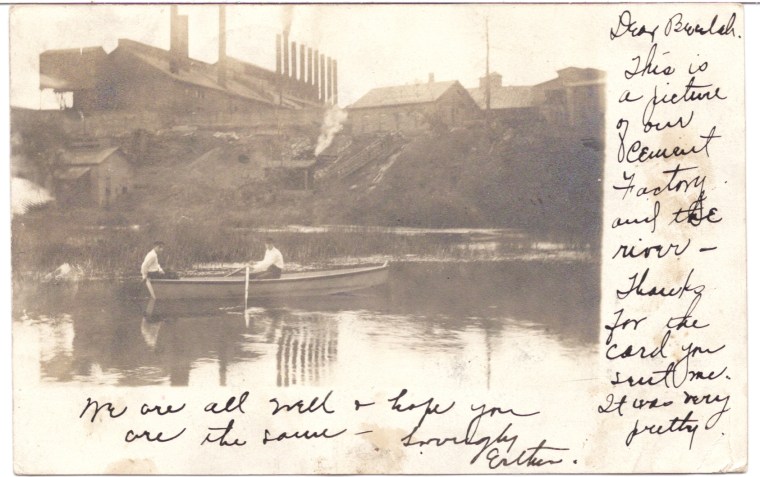 Dear Beulah.
This is
a picture
of our
Cement
Factory
and the
river -
Thanks
for the
card you
sent me.
It was very
pretty.
We are all well & hope you
are the same - Lovingly
Esther.